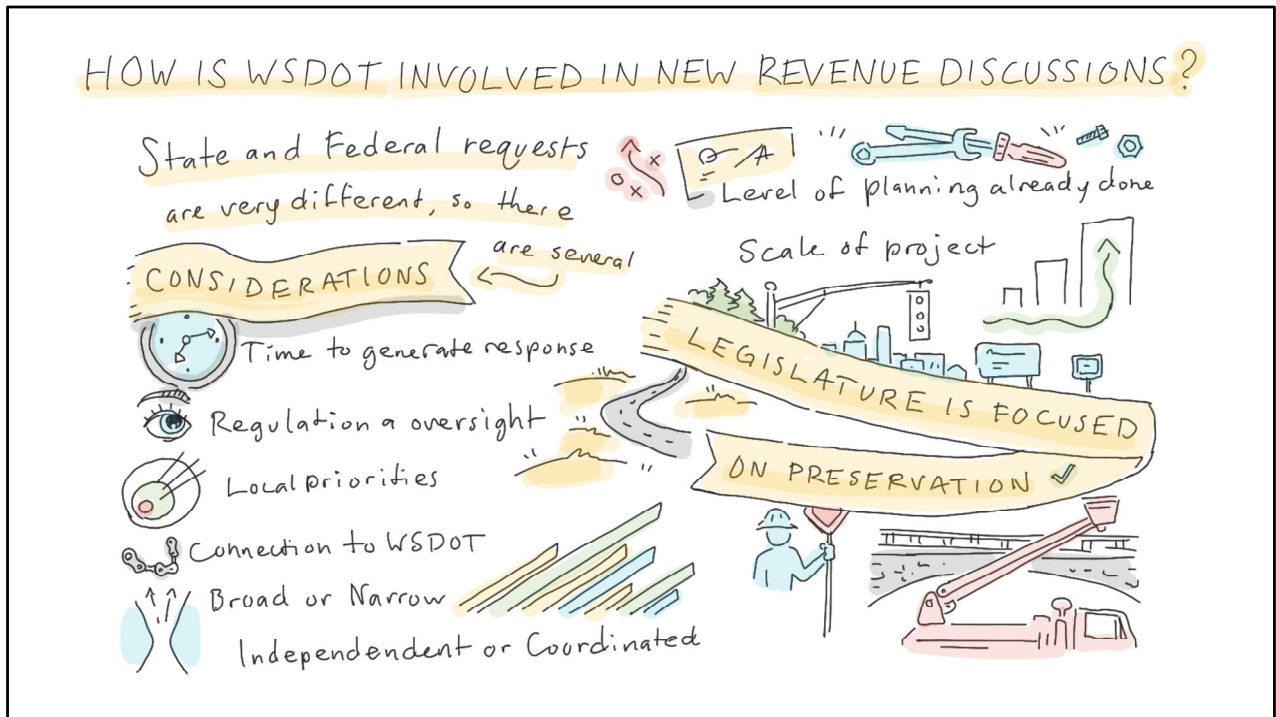 HOW IS WSDOT INVOLVED IN NEW REVENUE DISCUSSIONS?
State and Federal requests
are very different, so there
are several
CONSIDERATIONS
Time to generate response
Regulation a oversight
Local priorities
Connection to WSDOT
Broad or Narrow
Independendent or Coordinated
Level of planning already done
Scale of project
LEGISLATURE IS FOCUSED
ON PRESERVATION ✓